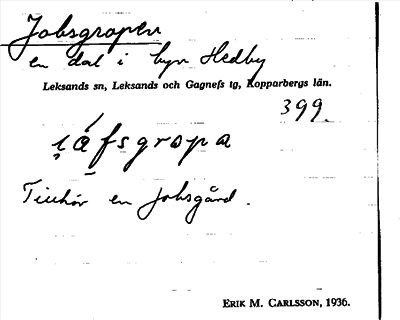 Jobsgropen
en dal i byn Hedby
Leksands sn, Leksands och Gagnefs tg, Kopparbergs län.
399.
i̯áfsgropa
Tillhör en Jobsgård.
ERIK M. CARLSSON, 1936.